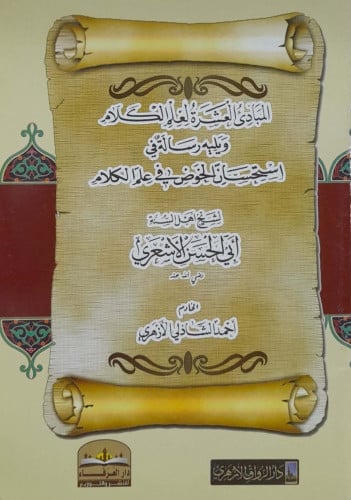 المبادئ العشرة لعلم الكلام
ويليه رسالة في
استحسان الخوض في علم الكلام
لشيخ أهل السنة
أبي الحسن الأشعري
رضي الله عنه
الخادم
أحمد الشاذلي الأزهري
دار العرفاء
للنشر والتوزيع
دار الرواق الأزهري